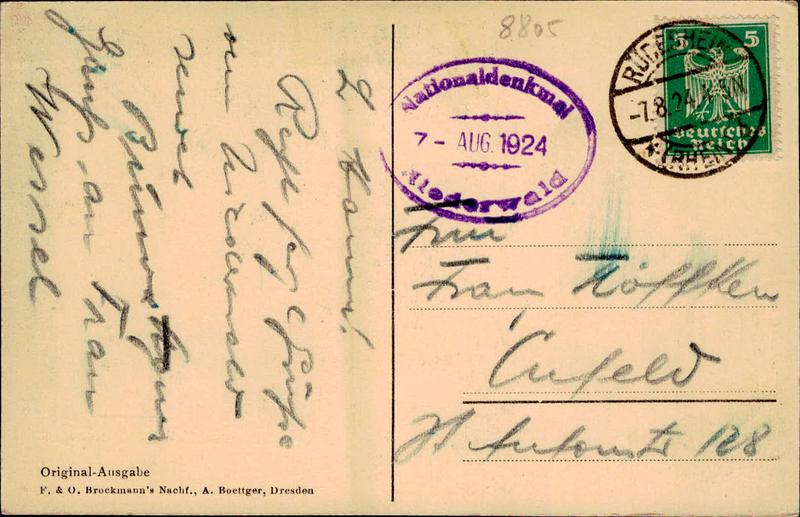 8805
5 5
Deutsches
Reich
RÜDESHEIM
-7.8.24
(RHEIN)
Nationaldenkmal
7 - AUG. 1924
Niederwald
Frau
Franz Höffken
Crefeld
St Antonstr 128
L Hanni!
Grüße
vom Niederwald
sendet
Gruß an Frau
Wessel
Original-Ausgabe
F. & O. Brockmann's Nachf., A. Boettger, Dresden